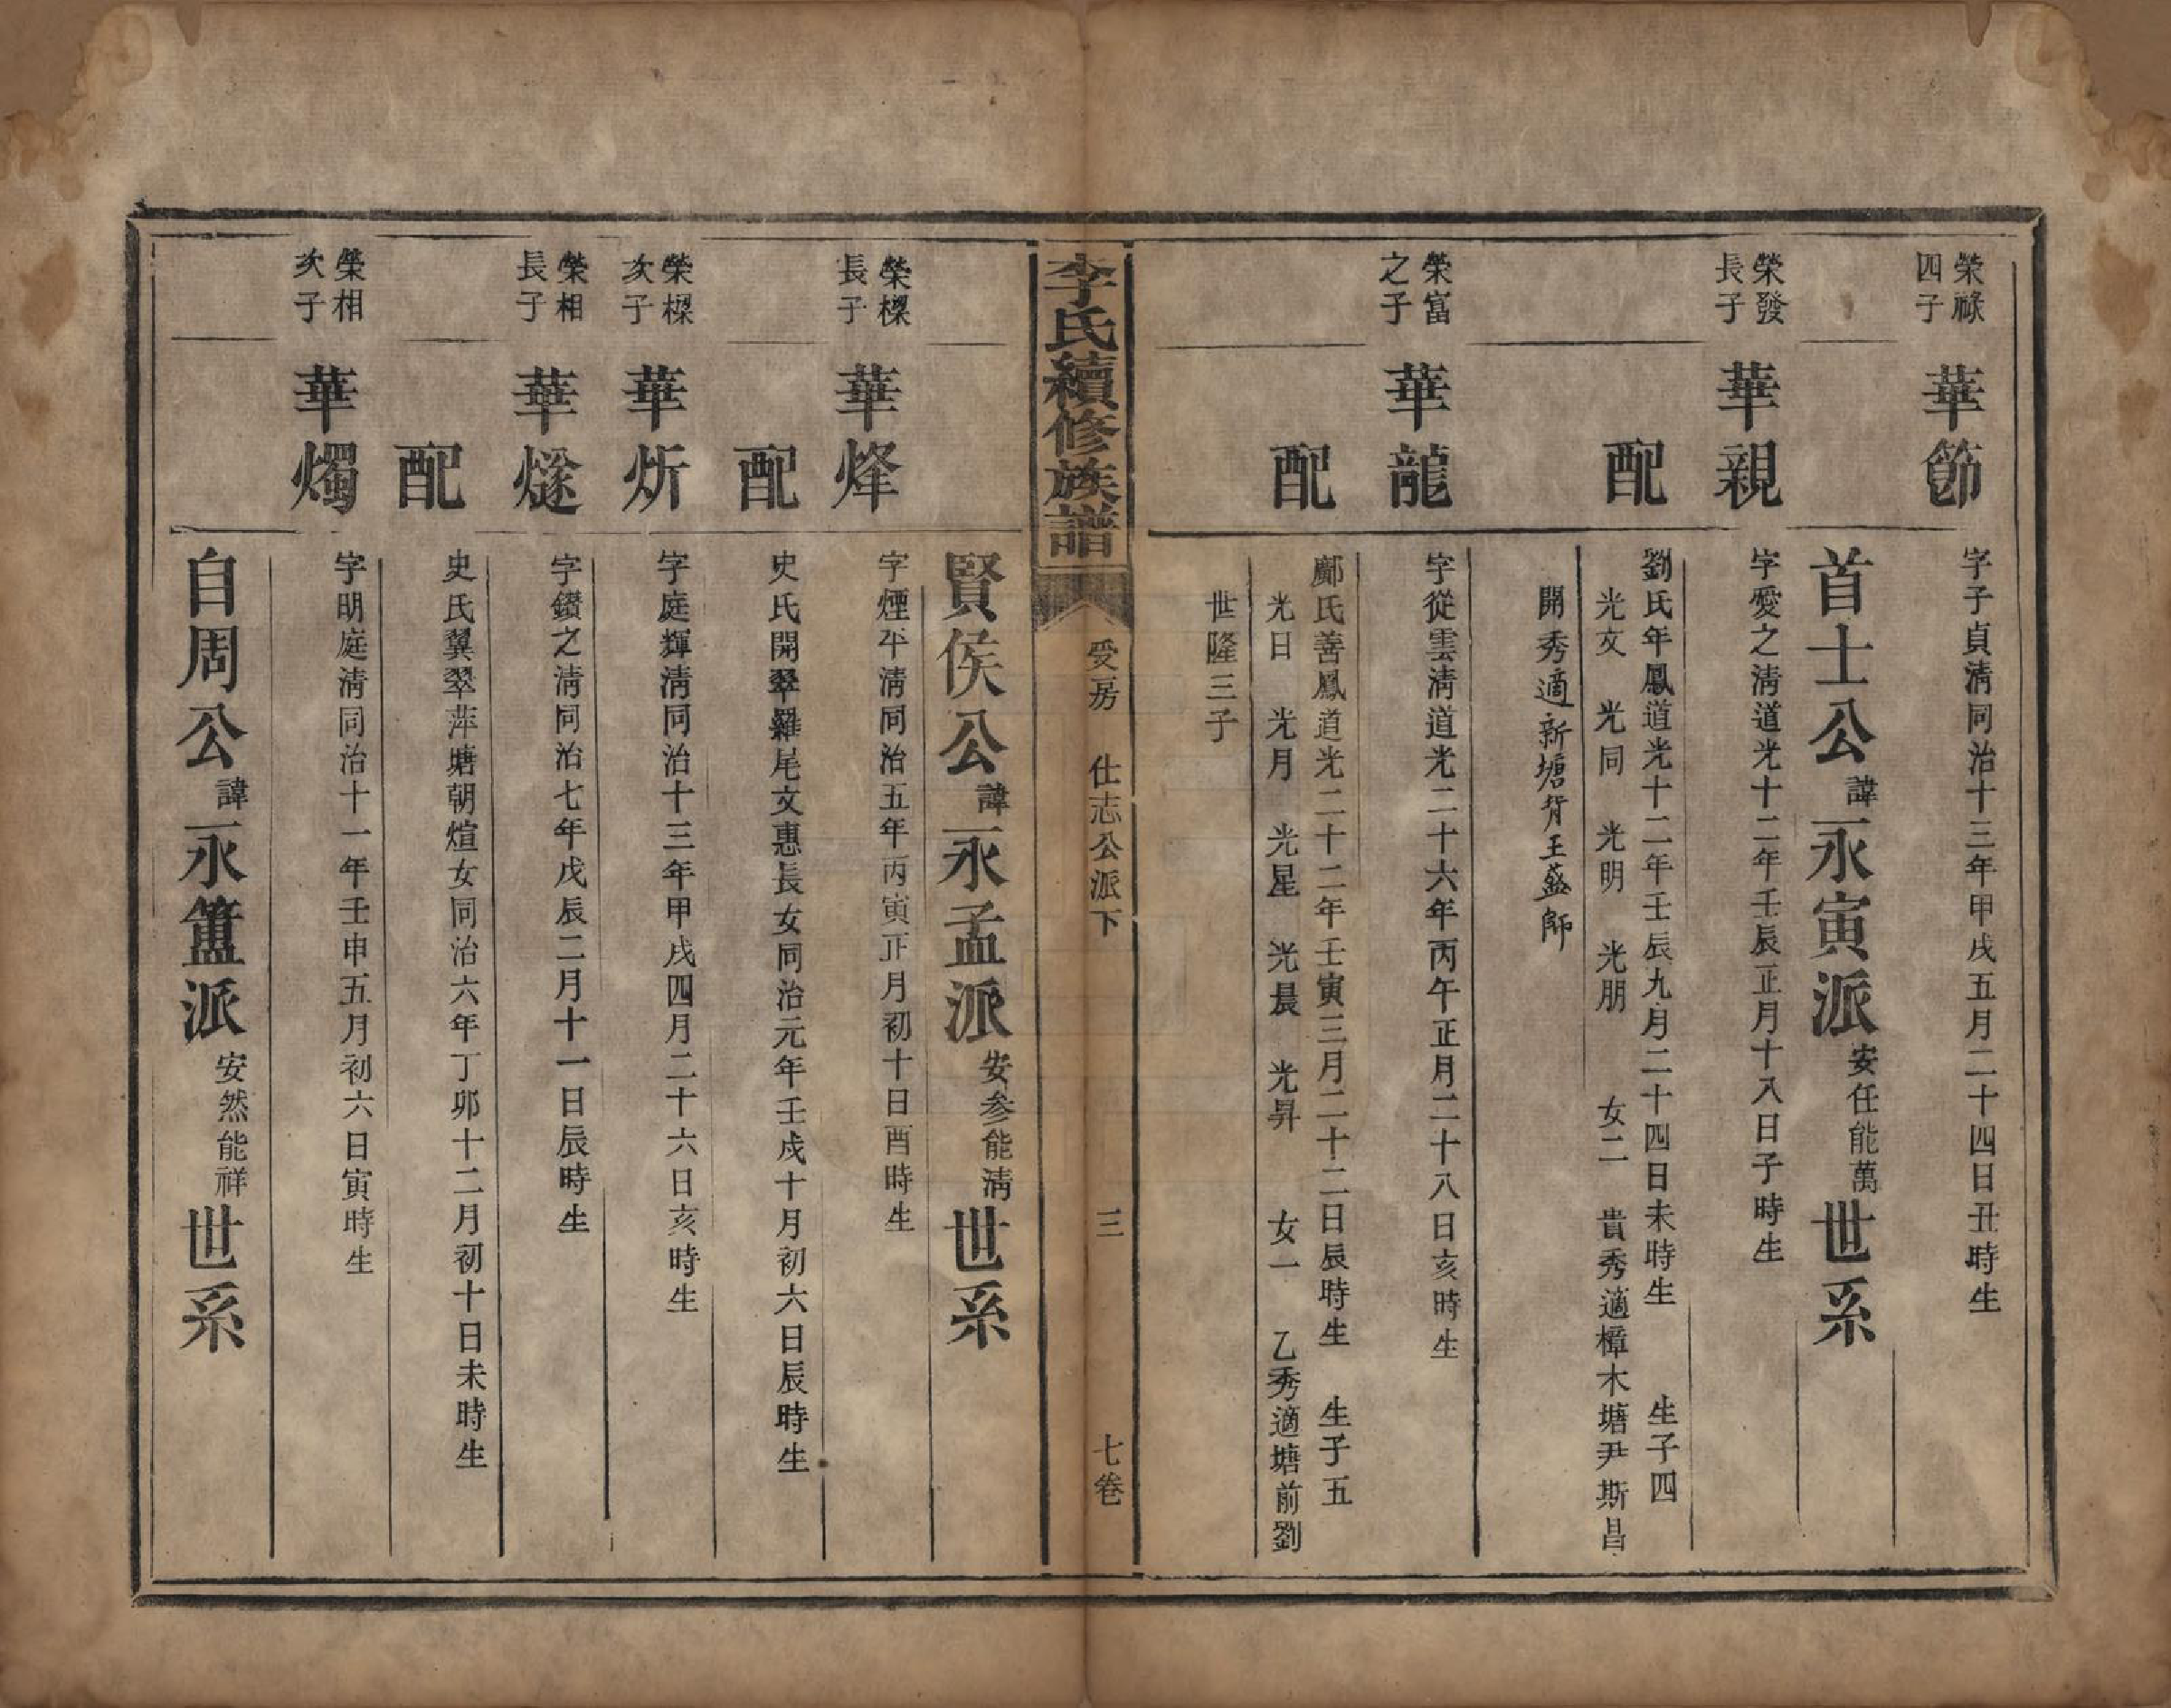 榮祿
四子
華節
字子貞淸同治十三年甲戌五月二十四日丑時生
首士公諱永寅派安任能萬世系
榮發
長子
華親
字愛之淸道光十二年壬辰正月十八日子時生
配
劉氏年鳳道光十二年壬辰九月二十四日未時生 生子四
光文 光同 光明 光朋 女二 貴秀適樟木塘尹斯昌
開秀適新塘背王盛師
榮富
之子
華龍
字從雲淸道光二十六年丙午正月二十八日亥時生
配
鄺氏善鳳道光二十二年壬寅三月二十二日辰時生 生子五
光日 光月 光星 光晨 光昇 女一 乙秀適塘前劉
世隆三子
李氏續修族譜
受房 仕志公派下 三 七卷
賢侯公諱永孟派安參能淸世系
榮樑
長子
華烽
字煙平淸同治五年丙寅正月初十日酉時生
配
史氏開翠羅尾文惠長女同治元年壬戌十月初六日辰時生
榮樑
次子
華炘
字庭輝淸同治十三年甲戌四月二十六日亥時生
榮相
長子
華燧
字鑽之淸同治七年戊辰二月十一日辰時生
配
史氏翼翠萍塘朝煊女同治六年丁卯十二月初十日未時生
榮相
次子
華燭
字明庭淸同治十一年壬申五月初六日寅時生
自周公諱永簠派安然能祥世系